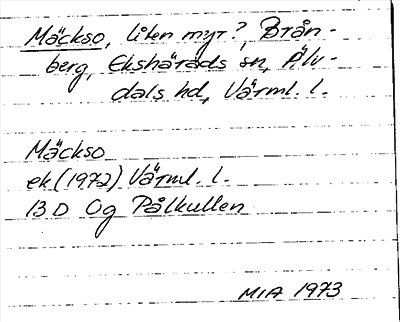 Mäckso, liten myr?, Brån-
berg, Ekshärads sn, Älv-
dals hd, Värml. l.
Mäckso
ek (1972) Värml. l.
13 D 0g Pålkullen
MIA 1973